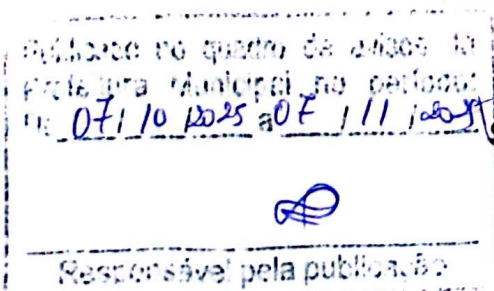 Publicado no quadro de avisos da
Prefeitura Municipal no período:
De 07/10/2025 a 07/11/2025
Responsável pela publicação